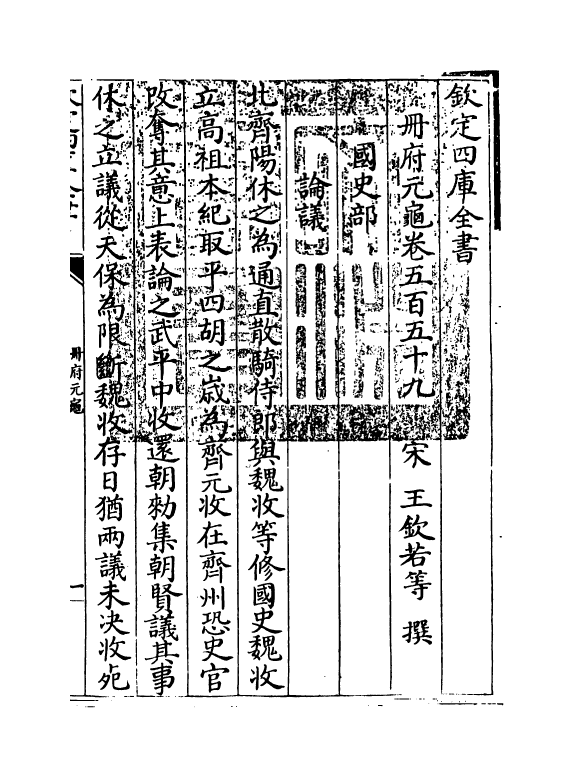 欽定四庫全書
冊府元龜卷五百五十九　宋　王欽若等　撰
國史部
論議
北齊陽休之為通直散騎侍郎與魏收等修國史魏收
立高祖本紀取平四胡之歳為齊元收在齊州恐史官
改奪其意上表論之武平中收還朝勑集朝賢議其事
休之立議從天保為限斷魏收存日猶兩議未決收死
冊府元龜
一